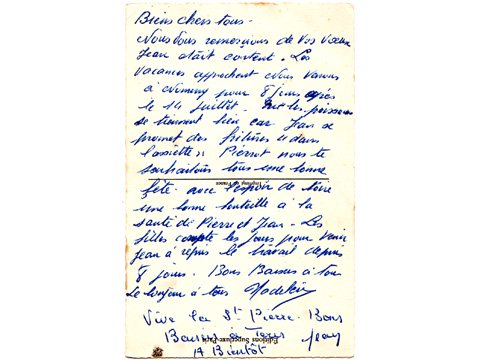 Biens chers tous -
Nous Vous remercions de Vos Vœux
Jean était content. Les
vacances approchent Nous Venons
à Nomeny pour 8 jours après
le 14 juillet. les poissons
se tiennent bien car Jean se
promet des fritures "dans
l'assiette" Pierrot nous te
souhaitons tous une bonne
fête avec l'espoir de boire
une bonne bouteille à la
santé de Pierre et Jean - Les
filles compte les jours pour venir
Jean à repris le travail depuis
8 jours. Bons Baisers à tous
Le bonjour à tous Madeleine
Vive la St Pierre. Bons
Baisers à Tous Jean
A Bientôt
Imprimé en France
Editions Superluxe-Paris